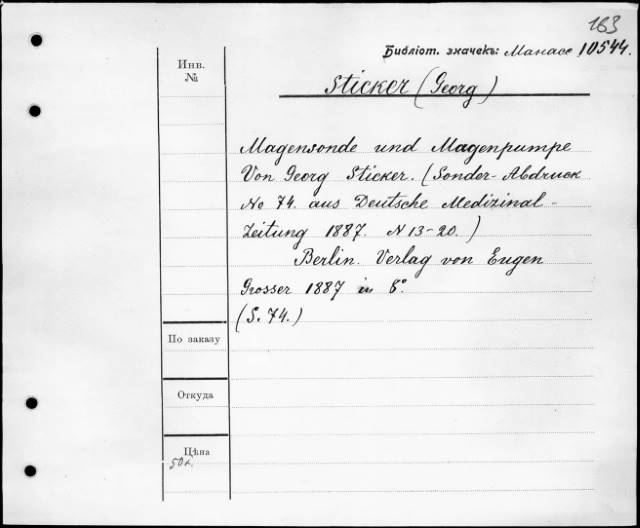 163
Библіот. значекъ: Манасе 10544.
Инв.
№
Sticker (Georg)
Magensonde und Magenpumpe
Von Georg Sticker. (Sonder-Abdruck
No 74. aus Deutsche Medizinal-
Zeitung 1887. N 13-20.)
Berlin. Verlag von Eugen
Grosser 1887 in 8°
(S. 74.)
По заказу
Откуда
Цѣна
50к.